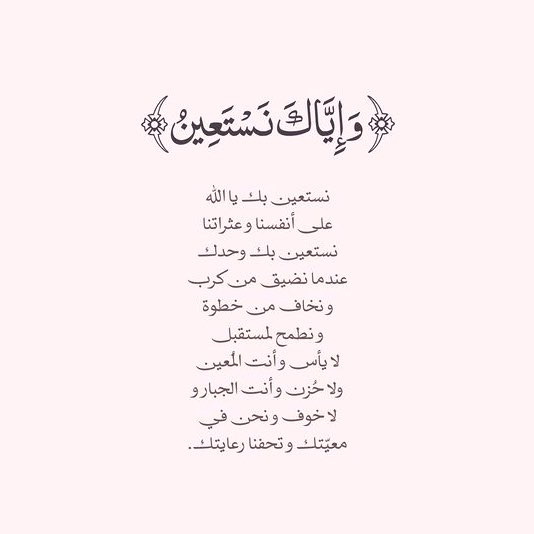 ﴿وَإِيَّاكَ نَسْتَعِينُ﴾
نستعين بك يا الله
على أنفسنا وعثراتنا
نستعين بك وحدك
عندما نضيق من كرب
ونخاف من خطوة
ونطمح لمستقبل
لا يأس وأنت المُعين
ولا حُزن وأنت الجبار و
لا خوف ونحن في
معيّتك وتحفنا رعايتك.